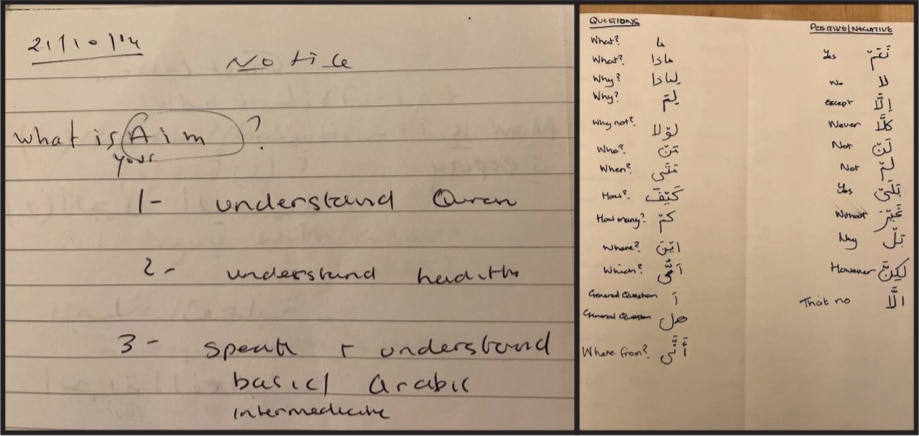 21/10/14
Notice
What is Aim ?
your
1- understand Quran
2- understand hadiths
3- speak + understand
basic/ Arabic
intermediate
QUESTIONS
What? ما
What? ماذا
Why? لماذا
Why? لِمَ
Why not? لَوْلا
Who? مَنْ
When? مَتَى
How? كَيْفَ
How many? كَمْ
Where? أيْنَ
Which? أَيُّ
General Question أ
General Question هل
Where from? أَنَّى
POSITIVE/NEGATIVE
Yes نَعَمْ
No لا
Except إلَّا
Never كَلَّا
Not لَنْ
Not لَمْ
Yes بَلَى
Without غَيْرَ
Nay بَلْ
However لَكِنَّ
That no ألَّا